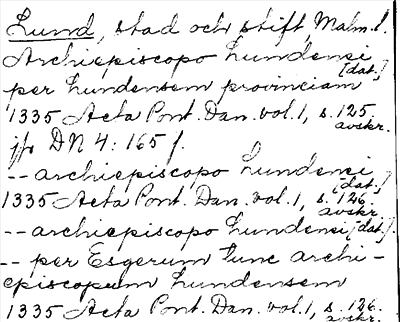 Lund, stad och stift, Malm. l.
Archiepiscopo Lundensi [dat.]
per Lundensem provinciam
1335 Acta Pont. Dan. vol. 1, s. 125 avskr.
jfr DN 4: 165 f.
-- archiepiscopo Lundensi [dat.]
1335 Acta Pont. Dan. vol. 1, s. 126. avskr.
-- archiepiscopo Lundensi [dat.].
-- per Esgerum tunc archi-
episcopum Lundensem
1335 Acta Pont. Dan. vol. 1, s. 126. avskr.